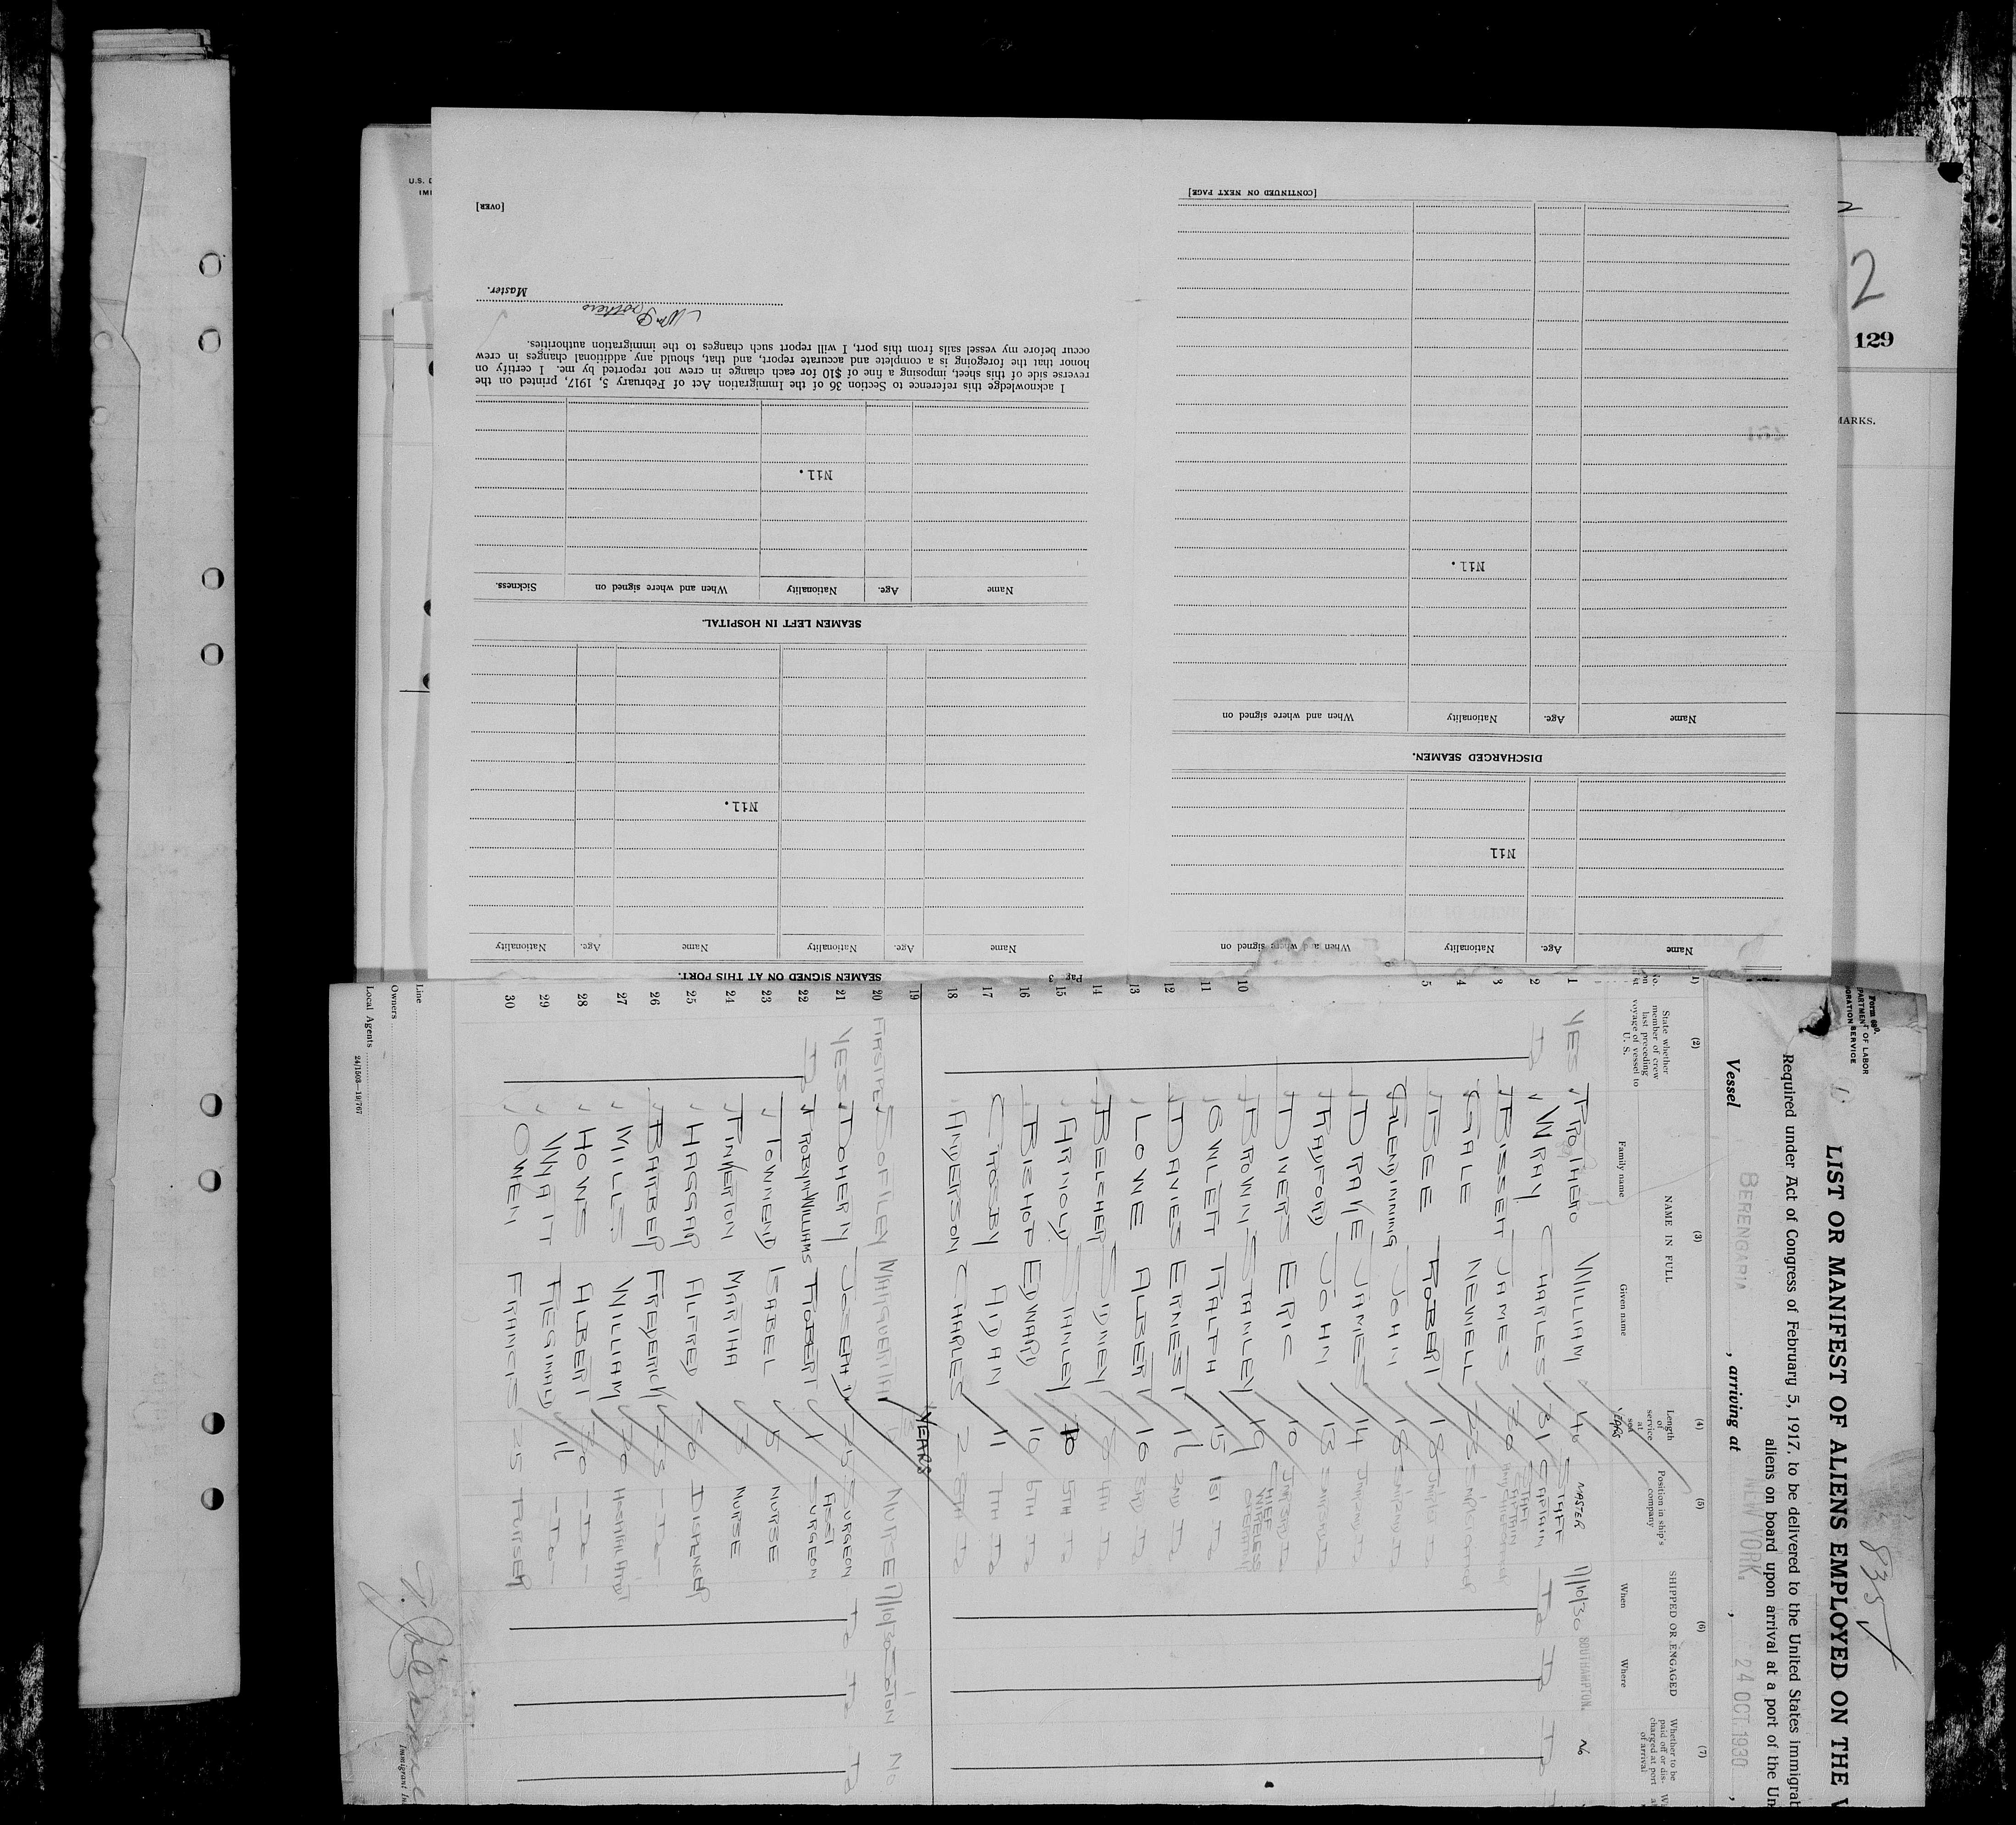 U.S. D
IMI
[OVER]
Master.
Wm Prothero
I acknowledge this reference to Section 36 of the Immigration Act of February 5, 1917, printed on the
reverse side of this sheet, imposing a fine of $10 for each change in crew not reported by me. I certify on
honor that the foregoing is a complete and accurate report, and that, should any additional changes in crew
occur before my vessel sails from this port, I will report such changes to the immigration authorities.
Nil.
Name Age. Nationality When and where signed on Sickness.
SEAMEN LEFT IN HOSPITAL.
Nil.
Name Age. Nationality Name Age. Nationality
SEAMEN SIGNED ON AT THIS PORT.
Pag 3
[CONTINUED ON NEXT PAGE]
Nil.
Name Age. Nationality When and where signed on
DISCHARGED SEAMEN.
Nil
Name Age. Nationality When and where signed on
2
129
MARKS.
Form 680.
PARTMENT OF LABOR
GRATION SERVICE
835
LIST OR MANIFEST OF ALIENS EMPLOYED ON THE V
Required under Act of Congress of February 5, 1917, to be delivered to the United States immigrat
aliens on board upon arrival at a port of the Un
Vessel BERENGARIA , arriving at NEW YORK. , 24 OCT 1930 ,
(1) (2) (3) (4) (5) (6) (7)
State whether member of crew last preceding voyage of vessel to U. S.
NAME IN FULL
Family name Given name
Length of service at sea
YEARS
Position in ship's company
SHIPPED OR ENGAGED
When Where
Whether to be paid off or discharged at port of arrival
1 YES PROTHERO WILLIAM 40 MASTER 1/10/30 SOUTHAMPTON. No
2 Do WRAY CHARLES 31 STAFF CAPTAIN Do Do Do
3 BISSETT JAMES 30
4 GALE NEWELL 23
5 BEE ROBERT 18
GLENDINNING JOHN 18
DRAKE JAMES 14
RAYFORD JOHN 13
DIVERS ERIC 10
10 BROWN STANLEY 19 CHIEF WIRELESS OPERATOR
11 OWLETT RALPH 15 1ST Do
12 DAVIES ERNEST 16 2ND Do
13 LOWE ALBERT 10 3RD Do
14 BELCHER SIDNEY 8 4TH Do
15 ARNOLD STANLEY 10 5TH Do
16 BISHOP EDWARD 10 6TH Do
17 CROSBY AIDAN 11 7TH Do
18 ANDERSON CHARLES 2 8TH Do
19 YEARS
20 FIRST TIME SOFILEY MARGUERITA NURSE 17/10/30 SOTON No
21 YES DOHERN JOSEPH D 25 SURGEON Do Do Do
22 Do ROBYN-WILLIAMS ROBERT 1 ASST SURGEON
23 TOWNEND ISABEL 15 NURSE
24 PINKERTON MARTHA 3 NURSE
25 HAGGAR ALFRED 30 DISPENSER
26 BARBER FREDERICK 23 -Do-
27 MILLS WILLIAM 20 HOSPITAL ATTDT
28 HOWS ALBERT 30 -Do-
29 WAIT REGINALD 11 -Do-
30 OWEN FRANCIS 35 PURSER
Line
Owners
Local Agents
24/1503—19/767
Immigrant In